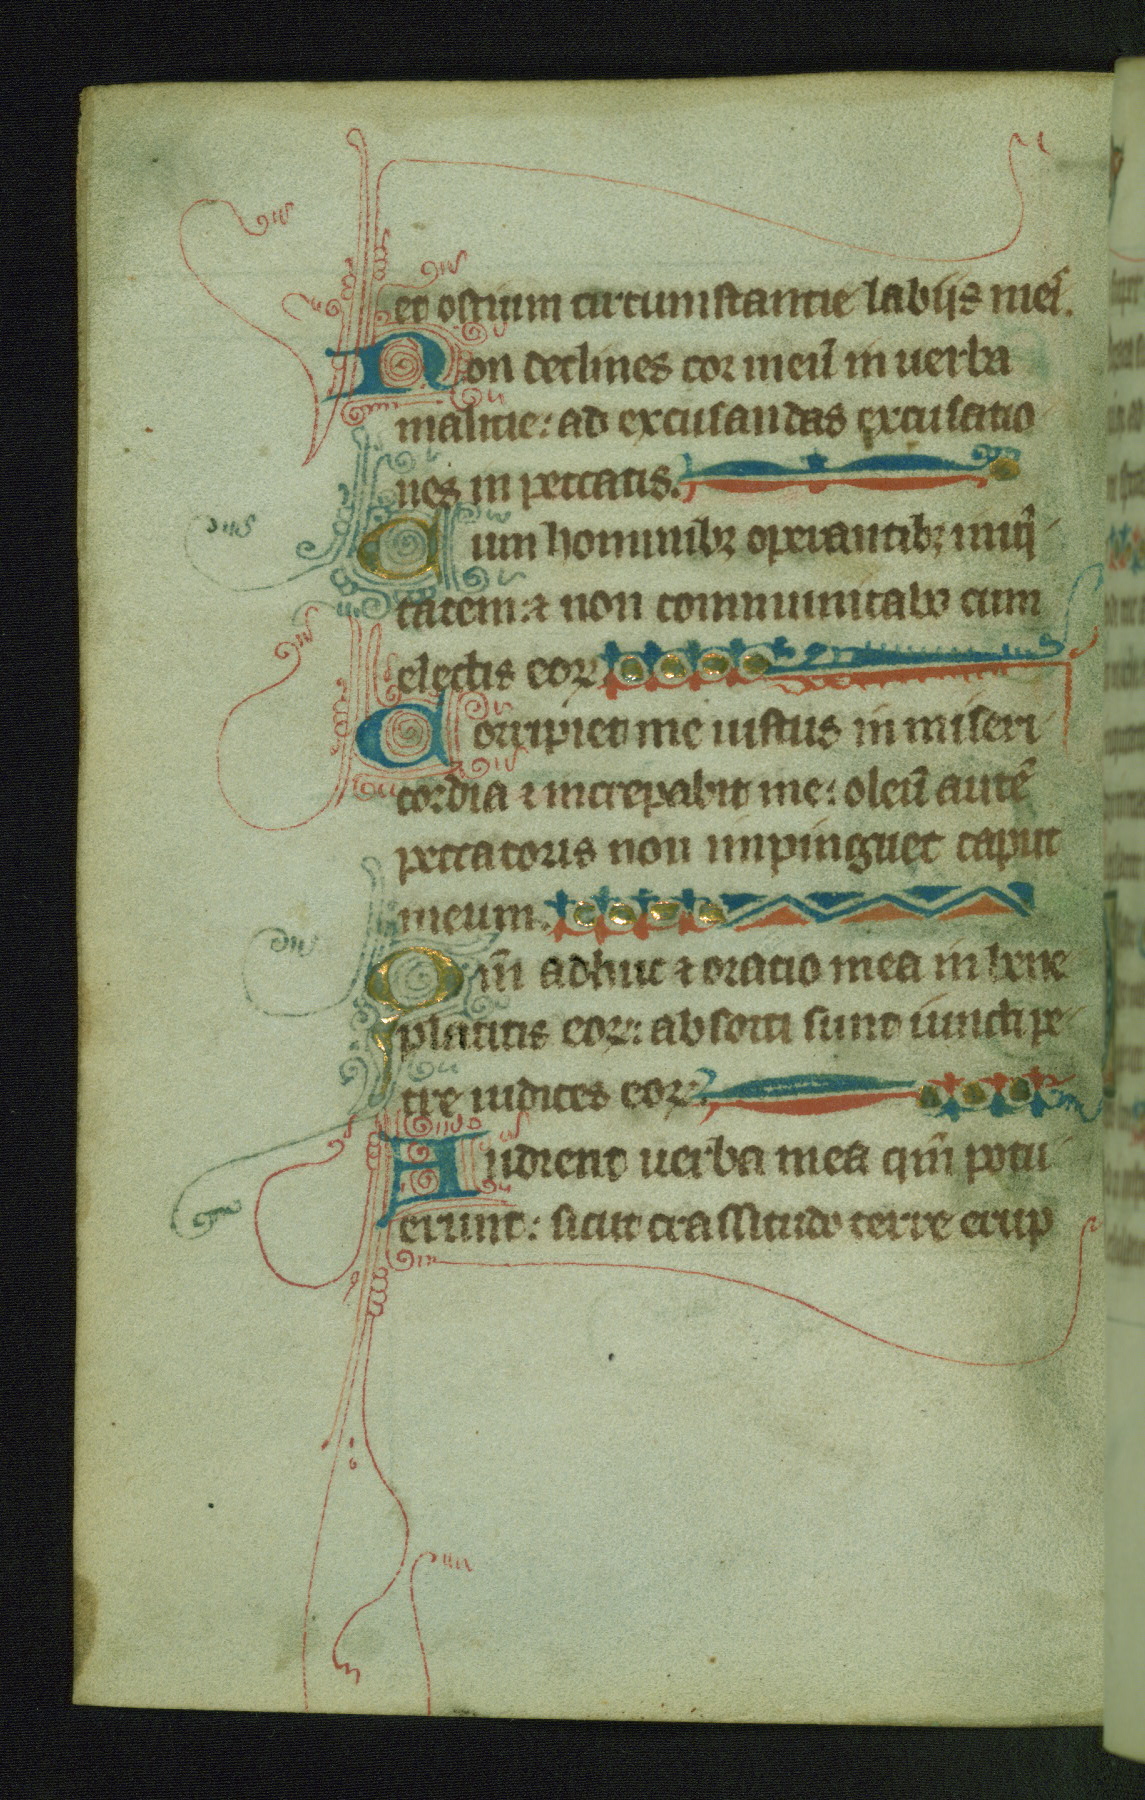 et ostium circumstancie labijs meis.
Non declines cor meu̅ in uerba
malicie: ad excusandas excusatio
nes in peccatis.
Cum hominibꝫ operantibꝫ iniq̅
tatem: ⁊ non communicabo cum
electis eoꝝ
Corripiet me iustus in miseri
cordia ⁊ increpabit me: oleu̅ aute̅
peccatoris non impinguet caput
meum.
Qm̅ adhuc ⁊ oratio mea in bene
placitis eoꝝ: absorti sunt iuncti pe
tre iudices eoꝝ.
Audient uerba mea qm̅ potu
erunt: sicut crassitudo terre erup